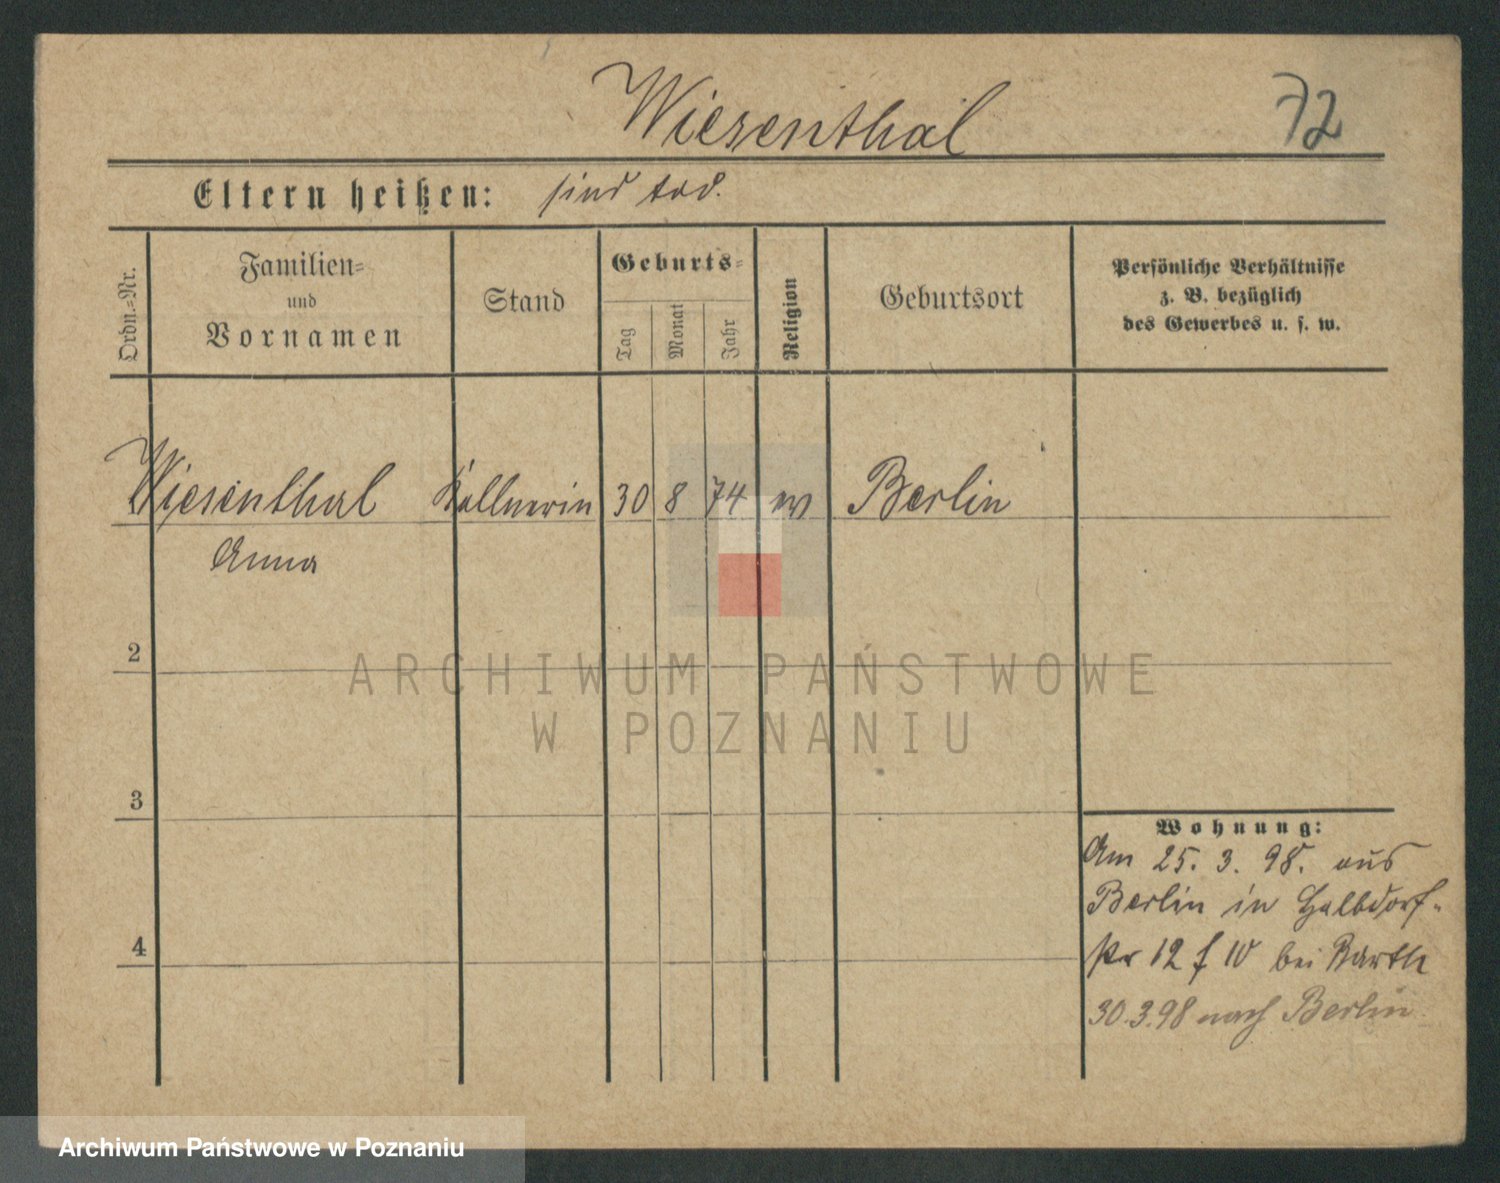 Wiesenthal
72
Eltern heißen: sind tod.
Ordn.=Nr.
Familien=
und
Vornamen
Stand
Geburts=
Tag
Monat
Jahr
Religion
Geburtsort
Persönliche Verhältnisse
z. B. bezüglich
des Gewerbes u. s. w.
Wiesenthal Kellnerin 30 8 74 Berlin
Anna
2
ARCHIWUM PAŃSTWOWE
W POZNANIU
3
Wohnung:
Am 25. 3. 98. aus
Berlin in Halbdorf-
str 12 10 bei Barth
4
30.3.98 nach Berlin
Archiwum Państwowe w Poznaniu